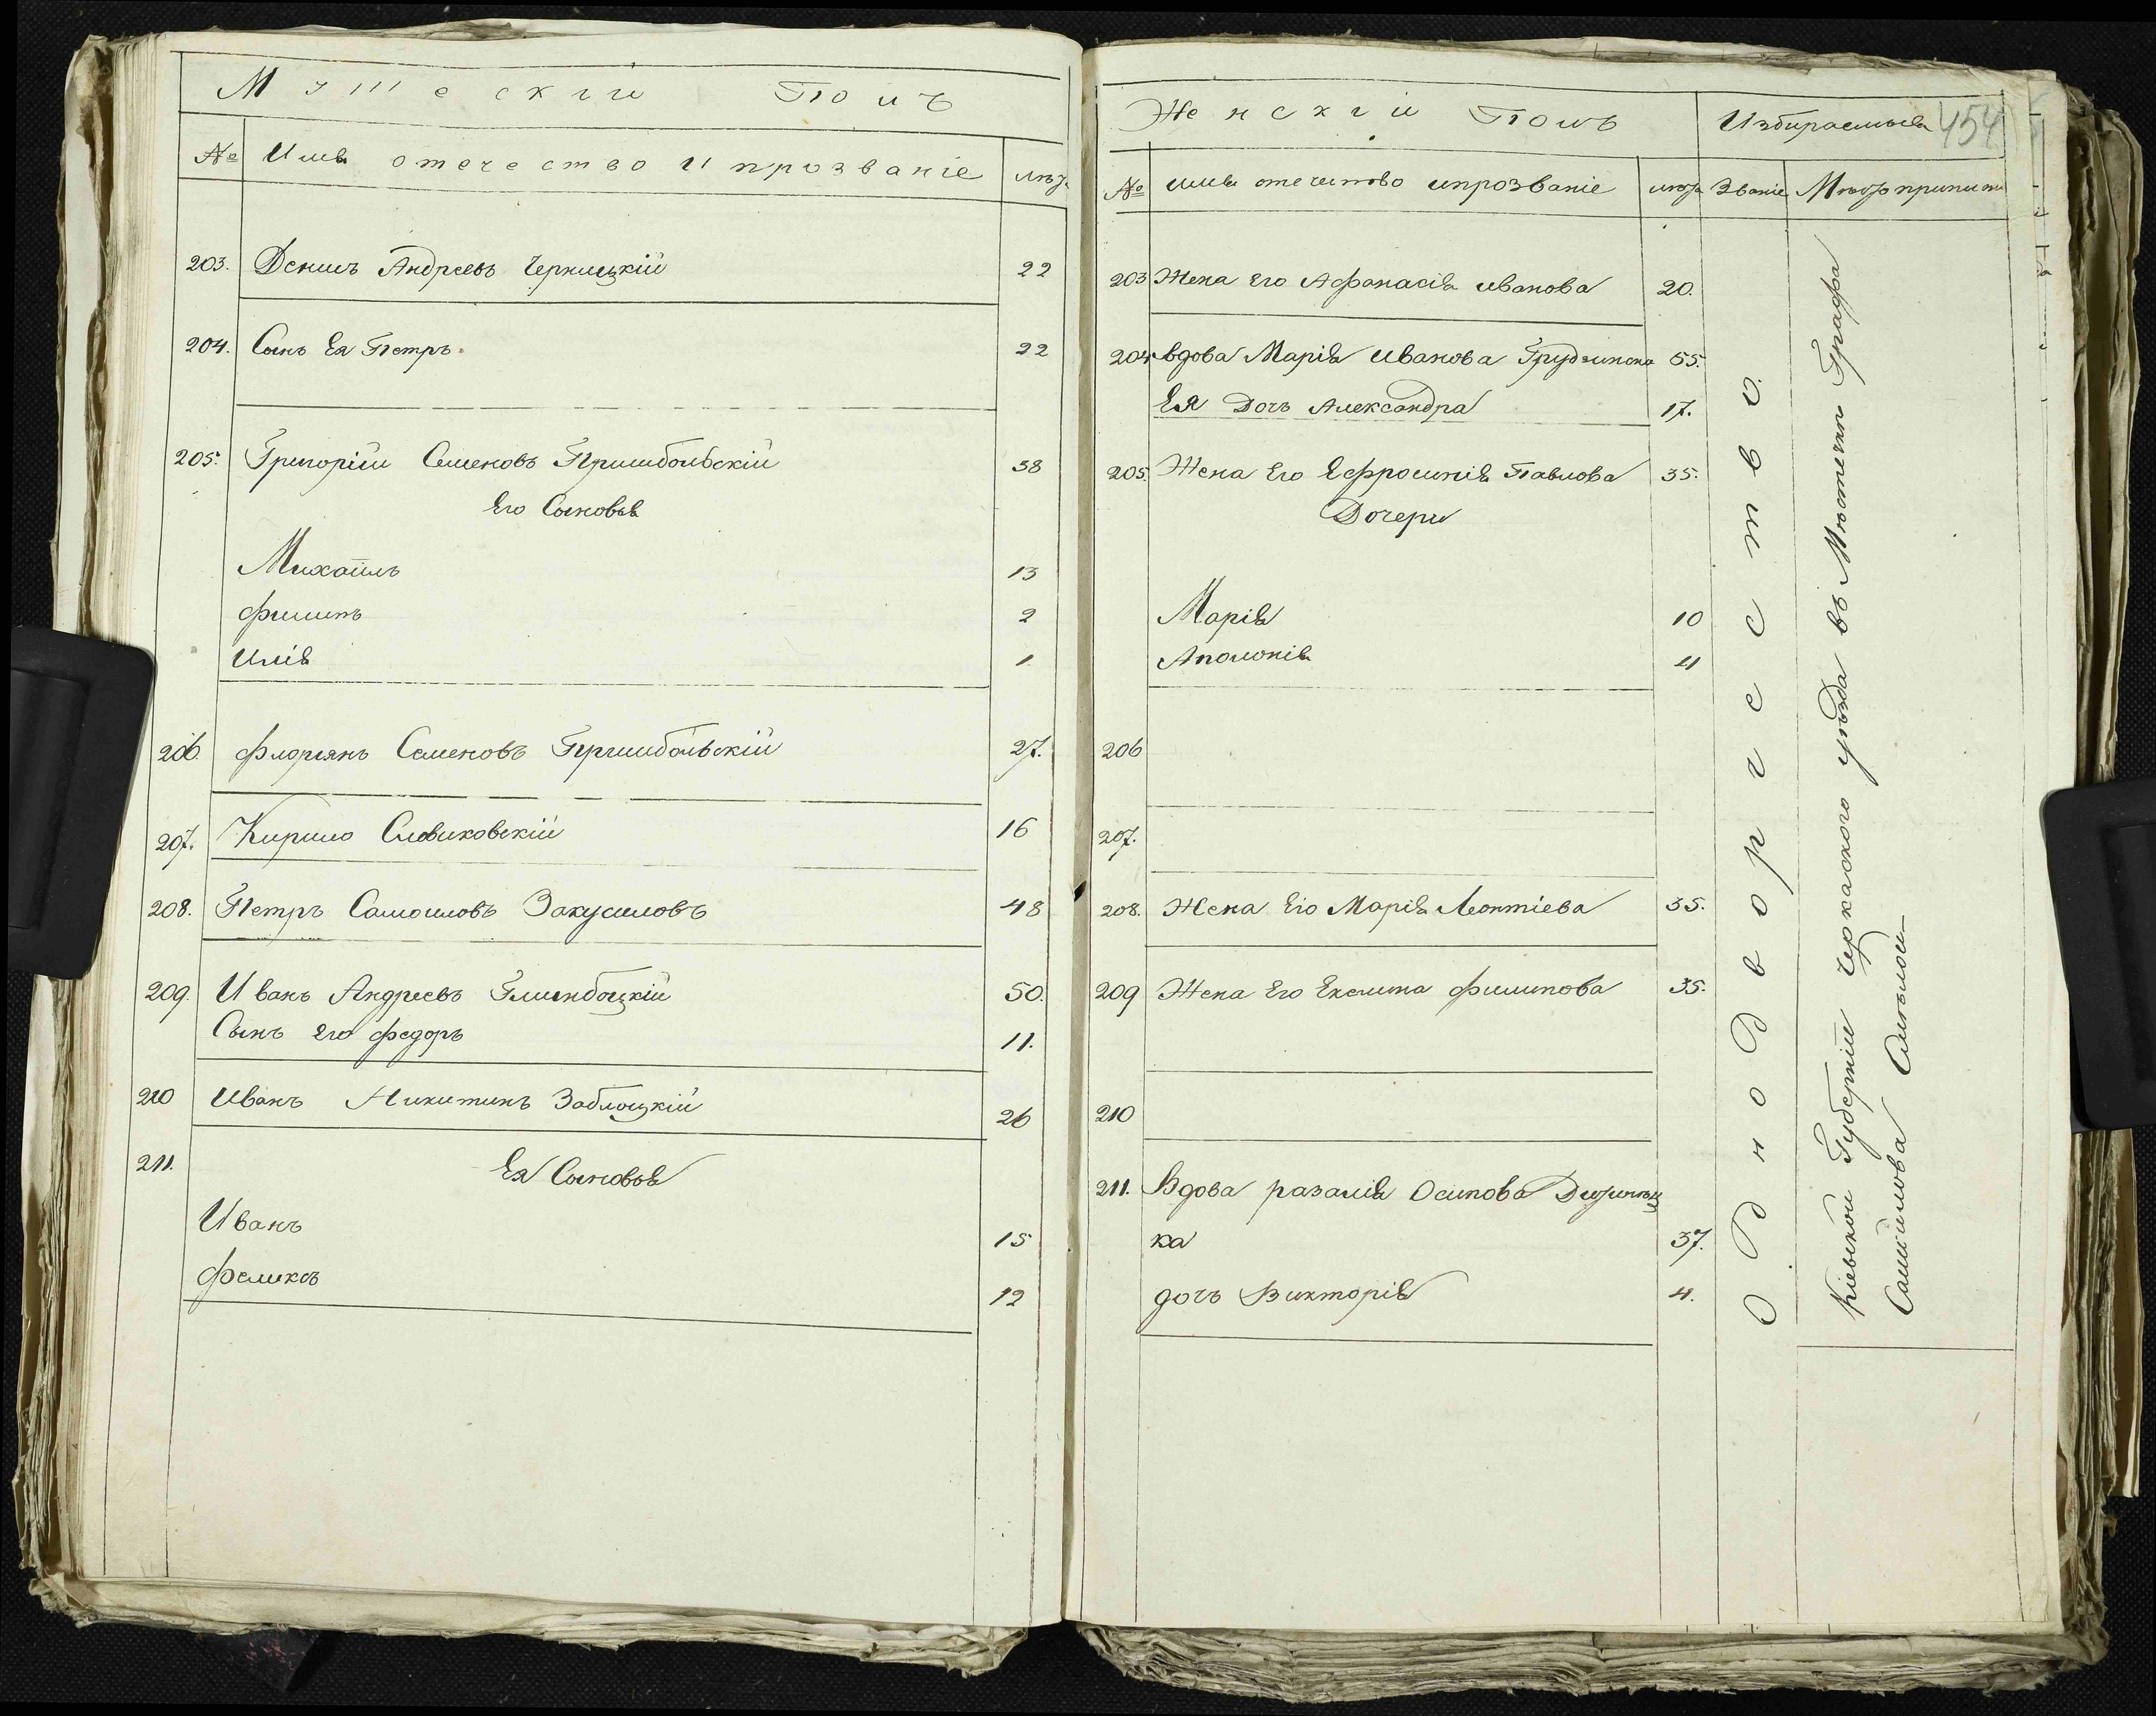 Мужескій Полъ
№ Имя отечество и прозваніе лѣта
203. Денисъ Андреевъ Черницкій 22
204. Сынъ Ея Петръ. 22
205. Григорій Семеновъ Пршибольскій 38
Его Сыновья
Михаилъ 13
Филипъ 2
Илія 1
206. Флоріянъ Семеновъ Пршибольскій 27.
207. Кирило Словиковскій 16
208. Петръ Самоиловъ Закусиловъ 48
209. Иванъ Андреевъ Глинбоцкій 50.
Сынъ его Федоръ 11.
210 Иванъ Никитинъ Заблоцкій 26
211. Ея Сыновья
Иванъ 15
Феликсъ 12
Женскій Полъ Избираемыя 454
№ имя отечество и прозваніе лѣта Званіе Мѣсто приписки
203 Жена Его Афанасія Иванова 20.
204 Вдова Марія Иванова Грудзинска 55.
Ея Дочь Александра 17.
205. Жена Его Ефросинія Павлова 35.
Дочери
Марія 10
Аполонія 4
206
207.
208. Жена Его Марія Леонтіева 35.
209 Жена Его Екелина Филипова 35.
210
211. Вдова Разалія Осипова
ка 37.
дочь Викторія 4.
Однодворчество.
Кіевской Губерніи Черкаского уѣзда въ Мѣстечки Графа
Самойлова Смѣлой